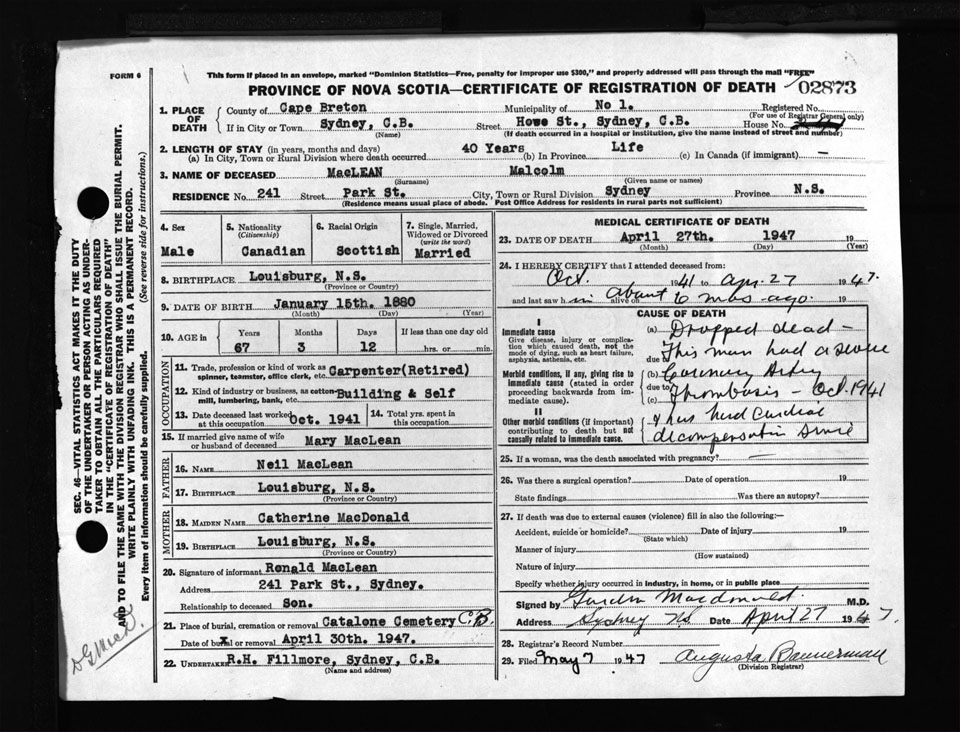 FORM 6
This form if placed in an envelope, marked "Dominion Statistics—Free, penalty for improper use $300," and properly addressed will pass through the mail "FREE"
PROVINCE OF NOVA SCOTIA—CERTIFICATE OF REGISTRATION OF DEATH
02873
1. PLACE OF DEATH
County of Cape Breton Municipality of No 1. Registered No.
(For use of Registrar General only)
If in City or Town Sydney, C.B. Street Howe St., Sydney, C.B. House No.
(Name) (If death occurred in a hospital or institution, give the name instead of street and number)
2. LENGTH OF STAY (in years, months and days)
(a) In City, Town or Rural Division where death occurred 40 Years (b) In Province Life (c) In Canada (if immigrant) —
3. NAME OF DECEASED MacLEAN Malcolm
(Surname) (Given name or names)
RESIDENCE No. 241 Street Park St. City, Town or Rural Division Sydney Province N.S.
(Residence means usual place of abode. Post Office Address for residents in rural parts not sufficient)
4. Sex Male
5. Nationality (Citizenship) Canadian
6. Racial Origin Scottish
7. Single, Married, Widowed or Divorced (write the word) Married
8. BIRTHPLACE Louisburg, N.S.
(Province or Country)
9. DATE OF BIRTH January 15th. 1880
(Month) (Day) (Year)
10. AGE in Years Months Days If less than one day old
67 3 12 hrs. or min.
OCCUPATION
11. Trade, profession or kind of work as spinner, teamster, office clerk, etc. Carpenter(Retired)
12. Kind of industry or business, as cotton-mill, lumbering, bank, etc. Building & Self
13. Date deceased last worked at this occupation Oct. 1941 14. Total yrs. spent in this occupation
15. If married give name of wife or husband of deceased Mary MacLean
FATHER
16. NAME Neil MacLean
17. BIRTHPLACE Louisburg, N.S.
(Province or Country)
MOTHER
18. MAIDEN NAME Catherine MacDonald
19. BIRTHPLACE Louisburg, N.S.
(Province or Country)
20. Signature of informant Ronald MacLean
Address 241 Park St., Sydney.
Relationship to deceased Son.
21. Place of burial, cremation or removal Catalone Cemetery C.B.
Date of burial or removal April 30th. 1947.
22. UNDERTAKER R.H. Fillmore, Sydney, C.B.
(Name and address)
MEDICAL CERTIFICATE OF DEATH
23. DATE OF DEATH April 27th. 1947 19
(Month) (Day) (Year)
24. I HEREBY CERTIFY that I attended deceased from:
Oct. 1941 to Apr. 27 1947.
and last saw him alive on about 6 mos ago. 19
CAUSE OF DEATH
I
Immediate cause
Give disease, injury or complication which caused death, not the mode of dying, such as heart failure, asphyxia, asthenia, etc.
(a) Dropped dead —
due to This man had a severe
Morbid conditions, if any, giving rise to immediate cause (stated in order proceeding backwards from immediate cause).
(b) Coronary Artery
due to
(c) Thrombosis — Oct. 1941
II
Other morbid conditions (if important) contributing to death but not causally related to immediate cause.
& has had Cardiac
decompensation since
25. If a woman, was the death associated with pregnancy? —
26. Was there a surgical operation? Date of operation 19
State findings Was there an autopsy?
27. If death was due to external causes (violence) fill in also the following:—
Accident, suicide or homicide? Date of injury 19
(State which)
Manner of injury
(How sustained)
Nature of injury
Specify whether injury occurred in industry, in home, or in public place
Signed by Gordon Macdonald. M.D.
Address Sydney NS Date April 27 1947.
28. Registrar's Record Number
29. Filed May 7 1947 Augusta Bannerman
(Division Registrar)
SEC. 46—VITAL STATISTICS ACT MAKES IT THE DUTY
OF THE UNDERTAKER OR PERSON ACTING AS UNDER-
TAKER TO OBTAIN ALL THE PARTICULARS REQUIRED
IN THE "CERTIFICATE OF REGISTRATION OF DEATH"
AND TO FILE THE SAME WITH THE DIVISION REGISTRAR WHO SHALL ISSUE THE BURIAL PERMIT.
WRITE PLAINLY WITH UNFADING INK. THIS IS A PERMANENT RECORD.
Every item of information should be carefully supplied. (See reverse side for instructions.)